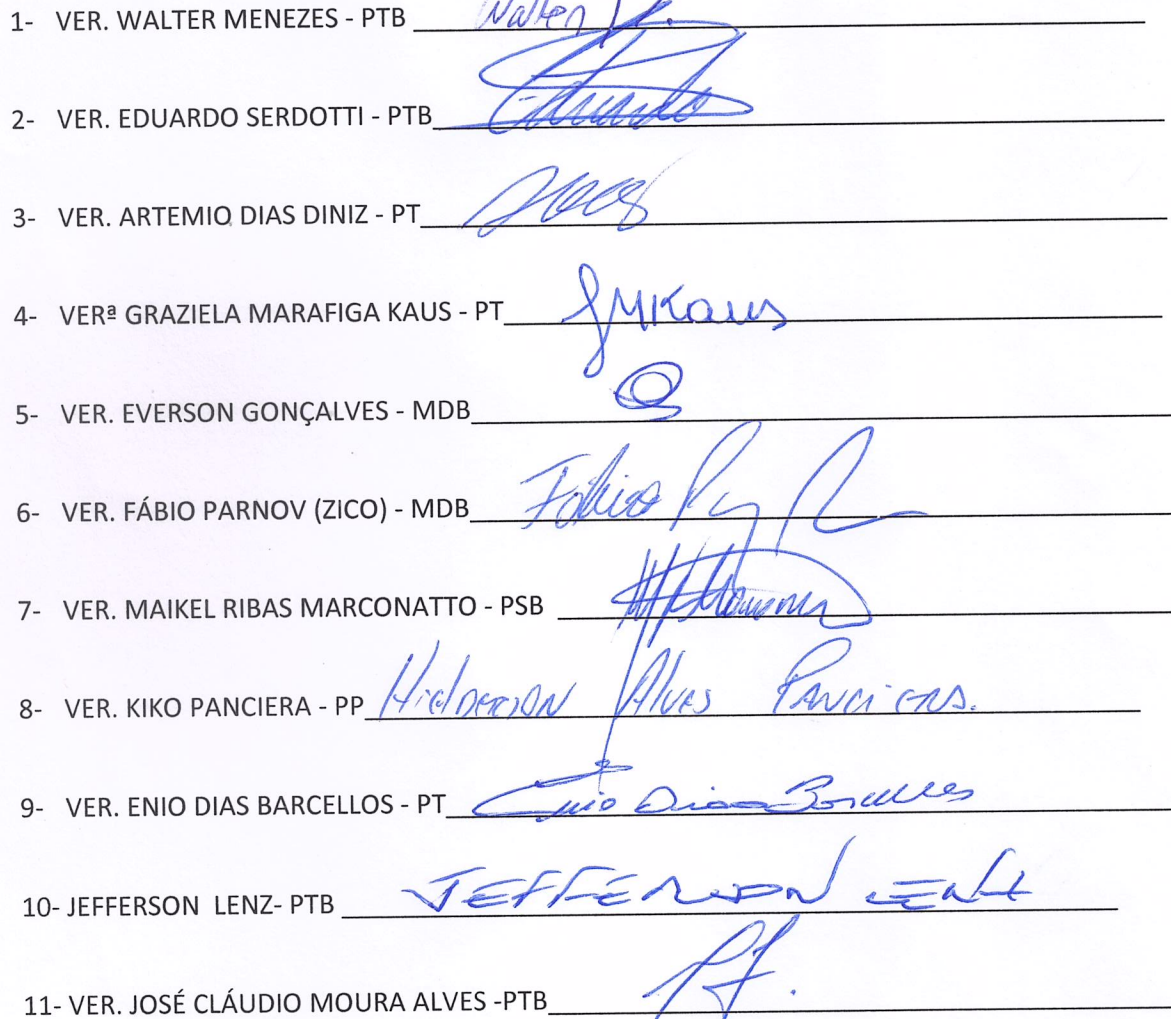 1- VER. WALTER MENEZES - PTB Walter
2- VER. EDUARDO SERDOTTI - PTB Eduardo
3- VER. ARTEMIO DIAS DINIZ - PT
4- VERª GRAZIELA MARAFIGA KAUS - PT GMKaus
5- VER. EVERSON GONÇALVES - MDB
6- VER. FÁBIO PARNOV (ZICO) - MDB Fábio
7- VER. MAIKEL RIBAS MARCONATTO - PSB
8- VER. KIKO PANCIERA - PP Alves
9- VER. ENIO DIAS BARCELLOS - PT Enio Dias Barcellos
10- JEFFERSON LENZ- PTB JEFFERSON LENZ
11- VER. JOSÉ CLÁUDIO MOURA ALVES -PTB